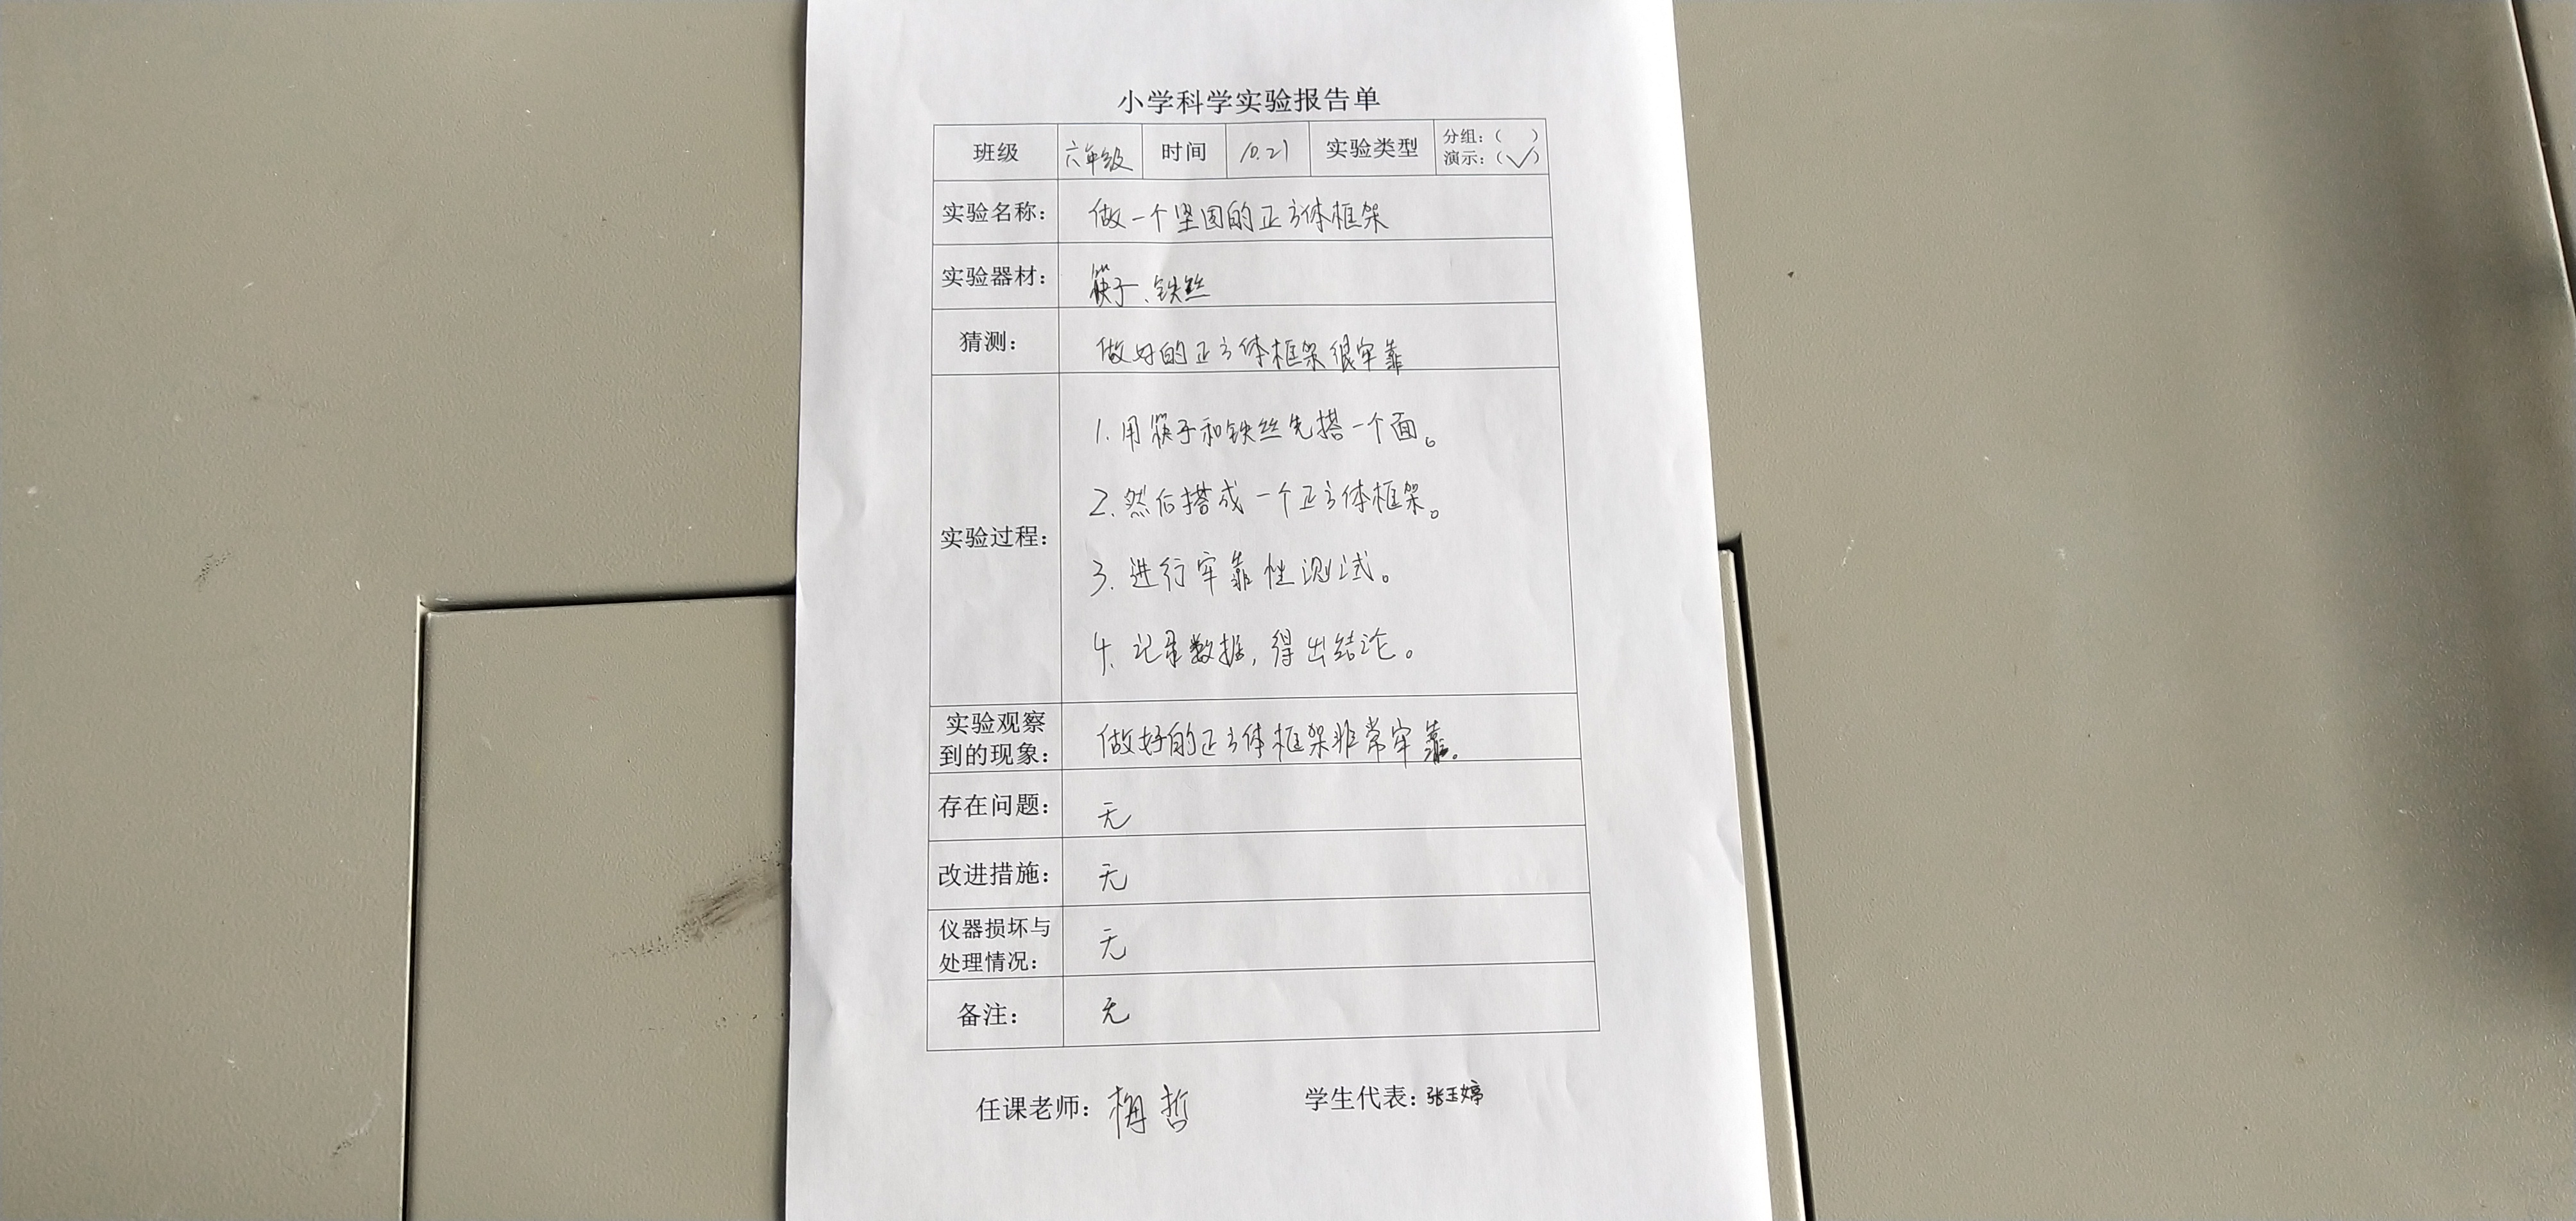 小学科学实验报告单
班级 六年级 时间 10.21 实验类型 分组：（ ）
演示：（✓）
实验名称： 做一个坚固的正方体框架
实验器材： 筷子、铁丝
猜测： 做好的正方体框架很牢靠
实验过程：
1. 用筷子和铁丝先搭一个面。
2. 然后搭成一个正方体框架。
3. 进行牢靠性测试。
4. 记录数据，得出结论。
实验观察
到的现象： 做好的正方体框架非常牢靠。
存在问题： 无
改进措施： 无
仪器损坏与
处理情况： 无
备注： 无
任课老师： 梅哲 学生代表：张玉婷